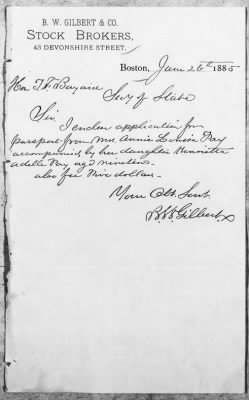 B. W. GILBERT & CO.
STOCK BROKERS,
43 DEVONSHIRE STREET,
Boston, June 26th 1885
Hon T. F. Bayard
Secy of State
Sir,
I enclose application for
passport from Mrs. Annie Louisa Fay
accompanied by her daughter Henrietta
Adelle Fay age nineteen.
also fee five dollars.
Your Obt. Servt
B. W. Gilbert.